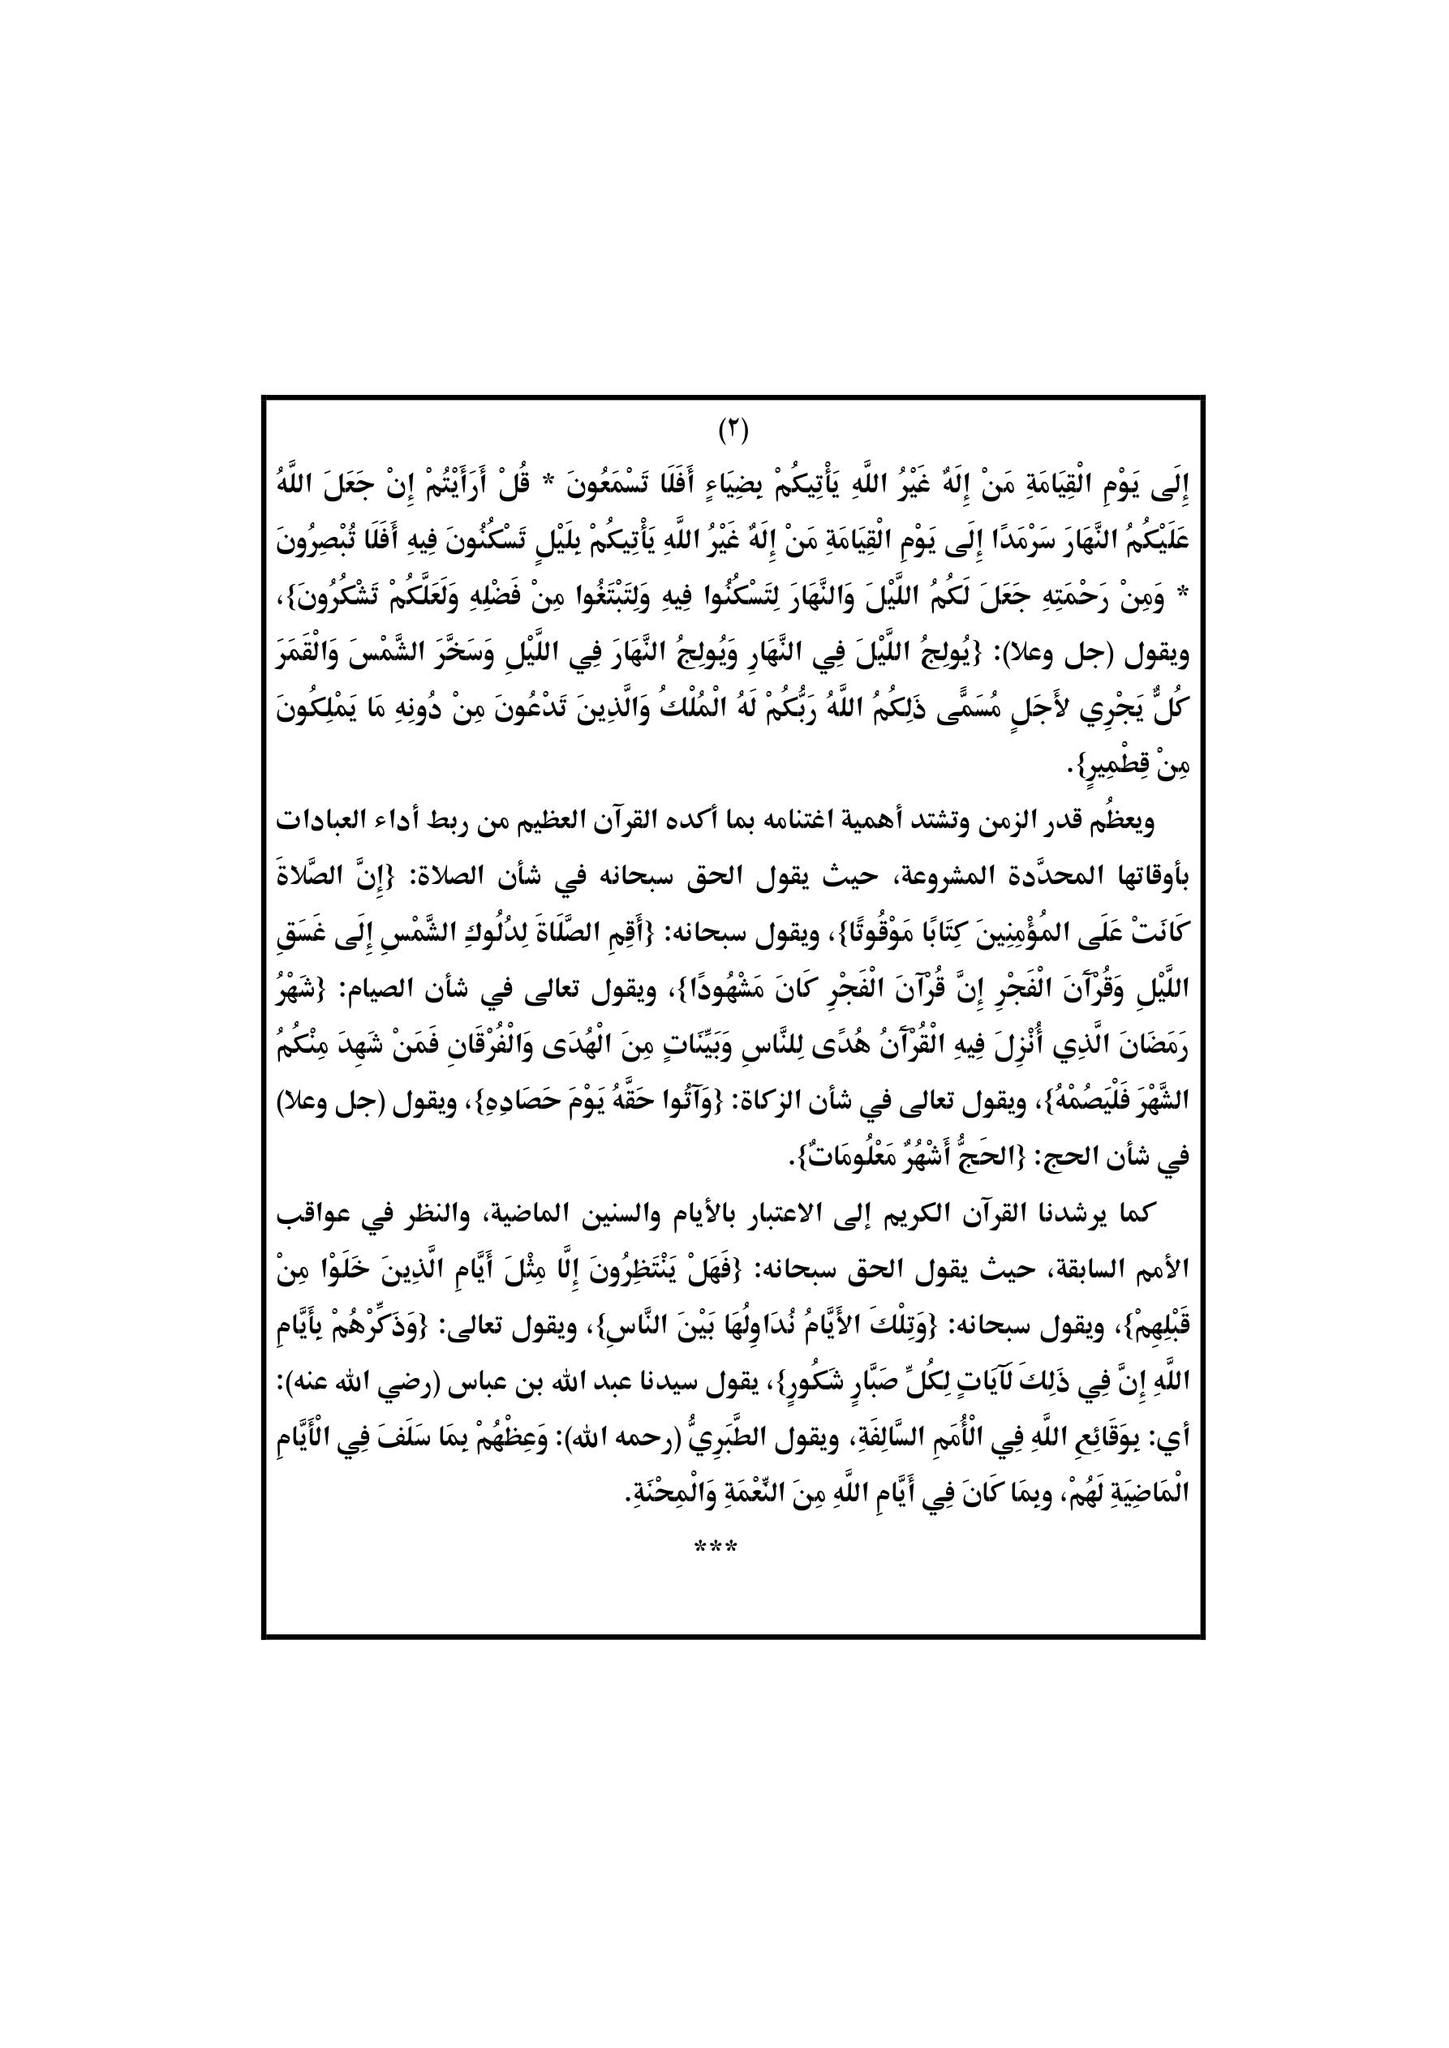 (٢)
إِلَى يَوْمِ الْقِيَامَةِ مَنْ إِلَهٌ غَيْرُ اللَّهِ يَأْتِيكُمْ بِضِيَاءٍ أَفَلَا تَسْمَعُونَ * قُلْ أَرَأَيْتُمْ إِنْ جَعَلَ اللَّهُ
عَلَيْكُمُ النَّهَارَ سَرْمَدًا إِلَى يَوْمِ الْقِيَامَةِ مَنْ إِلَهٌ غَيْرُ اللَّهِ يَأْتِيكُمْ بِلَيْلٍ تَسْكُنُونَ فِيهِ أَفَلَا تُبْصِرُونَ
* وَمِنْ رَحْمَتِهِ جَعَلَ لَكُمُ اللَّيْلَ وَالنَّهَارَ لِتَسْكُنُوا فِيهِ وَلِتَبْتَغُوا مِنْ فَضْلِهِ وَلَعَلَّكُمْ تَشْكُرُونَ}،
ويقول (جل وعلا): {يُولِجُ اللَّيْلَ فِي النَّهَارِ وَيُولِجُ النَّهَارَ فِي اللَّيْلِ وَسَخَّرَ الشَّمْسَ وَالْقَمَرَ
كُلٌّ يَجْرِي لأَجَلٍ مُسَمًّى ذَلِكُمُ اللَّهُ رَبُّكُمْ لَهُ الْمُلْكُ وَالَّذِينَ تَدْعُونَ مِنْ دُونِهِ مَا يَمْلِكُونَ
مِنْ قِطْمِيرٍ}.
ويعظُم قدر الزمن وتشتد أهمية اغتنامه بما أكده القرآن العظيم من ربط أداء العبادات
بأوقاتها المحدَّدة المشروعة، حيث يقول الحق سبحانه في شأن الصلاة: {إِنَّ الصَّلاةَ
كَانَتْ عَلَى المُؤْمِنِينَ كِتَابًا مَوْقُوتًا}، ويقول سبحانه: {أَقِمِ الصَّلَاةَ لِدُلُوكِ الشَّمْسِ إِلَى غَسَقِ
اللَّيْلِ وَقُرْآَنَ الْفَجْرِ إِنَّ قُرْآنَ الْفَجْرِ كَانَ مَشْهُودًا}، ويقول تعالى في شأن الصيام: {شَهْرُ
رَمَضَانَ الَّذِي أُنْزِلَ فِيهِ الْقُرْآَنُ هُدًى لِلنَّاسِ وَبَيِّنَاتٍ مِنَ الْهُدَى وَالْفُرْقَانِ فَمَنْ شَهِدَ مِنْكُمُ
الشَّهْرَ فَلْيَصُمْهُ}، ويقول تعالى في شأن الزكاة: {وَآَتُوا حَقَّهُ يَوْمَ حَصَادِهِ}، ويقول (جل وعلا)
في شأن الحج: {الحَجُّ أَشْهُرٌ مَعْلُومَاتٌ}.
كما يرشدنا القرآن الكريم إلى الاعتبار بالأيام والسنين الماضية، والنظر في عواقب
الأمم السابقة، حيث يقول الحق سبحانه: {فَهَلْ يَنْتَظِرُونَ إِلَّا مِثْلَ أَيَّامِ الَّذِينَ خَلَوْا مِنْ
قَبْلِهِمْ}، ويقول سبحانه: {وَتِلْكَ الأَيَّامُ نُدَاوِلُهَا بَيْنَ النَّاسِ}، ويقول تعالى: {وَذَكِّرْهُمْ بِأَيَّامِ
اللَّهِ إِنَّ فِي ذَلِكَ لَآَيَاتٍ لِكُلِّ صَبَّارٍ شَكُورٍ}، يقول سيدنا عبد الله بن عباس (رضي الله عنه):
أي: بِوَقَائِعِ اللَّهِ فِي الْأُمَمِ السَّالِفَةِ، ويقول الطَّبَرِيُّ (رحمه الله): وَعِظْهُمْ بِمَا سَلَفَ فِي الْأَيَّامِ
الْمَاضِيَةِ لَهُمْ، وبِمَا كَانَ فِي أَيَّامِ اللَّهِ مِنَ النِّعْمَةِ وَالْمِحْنَةِ.
***